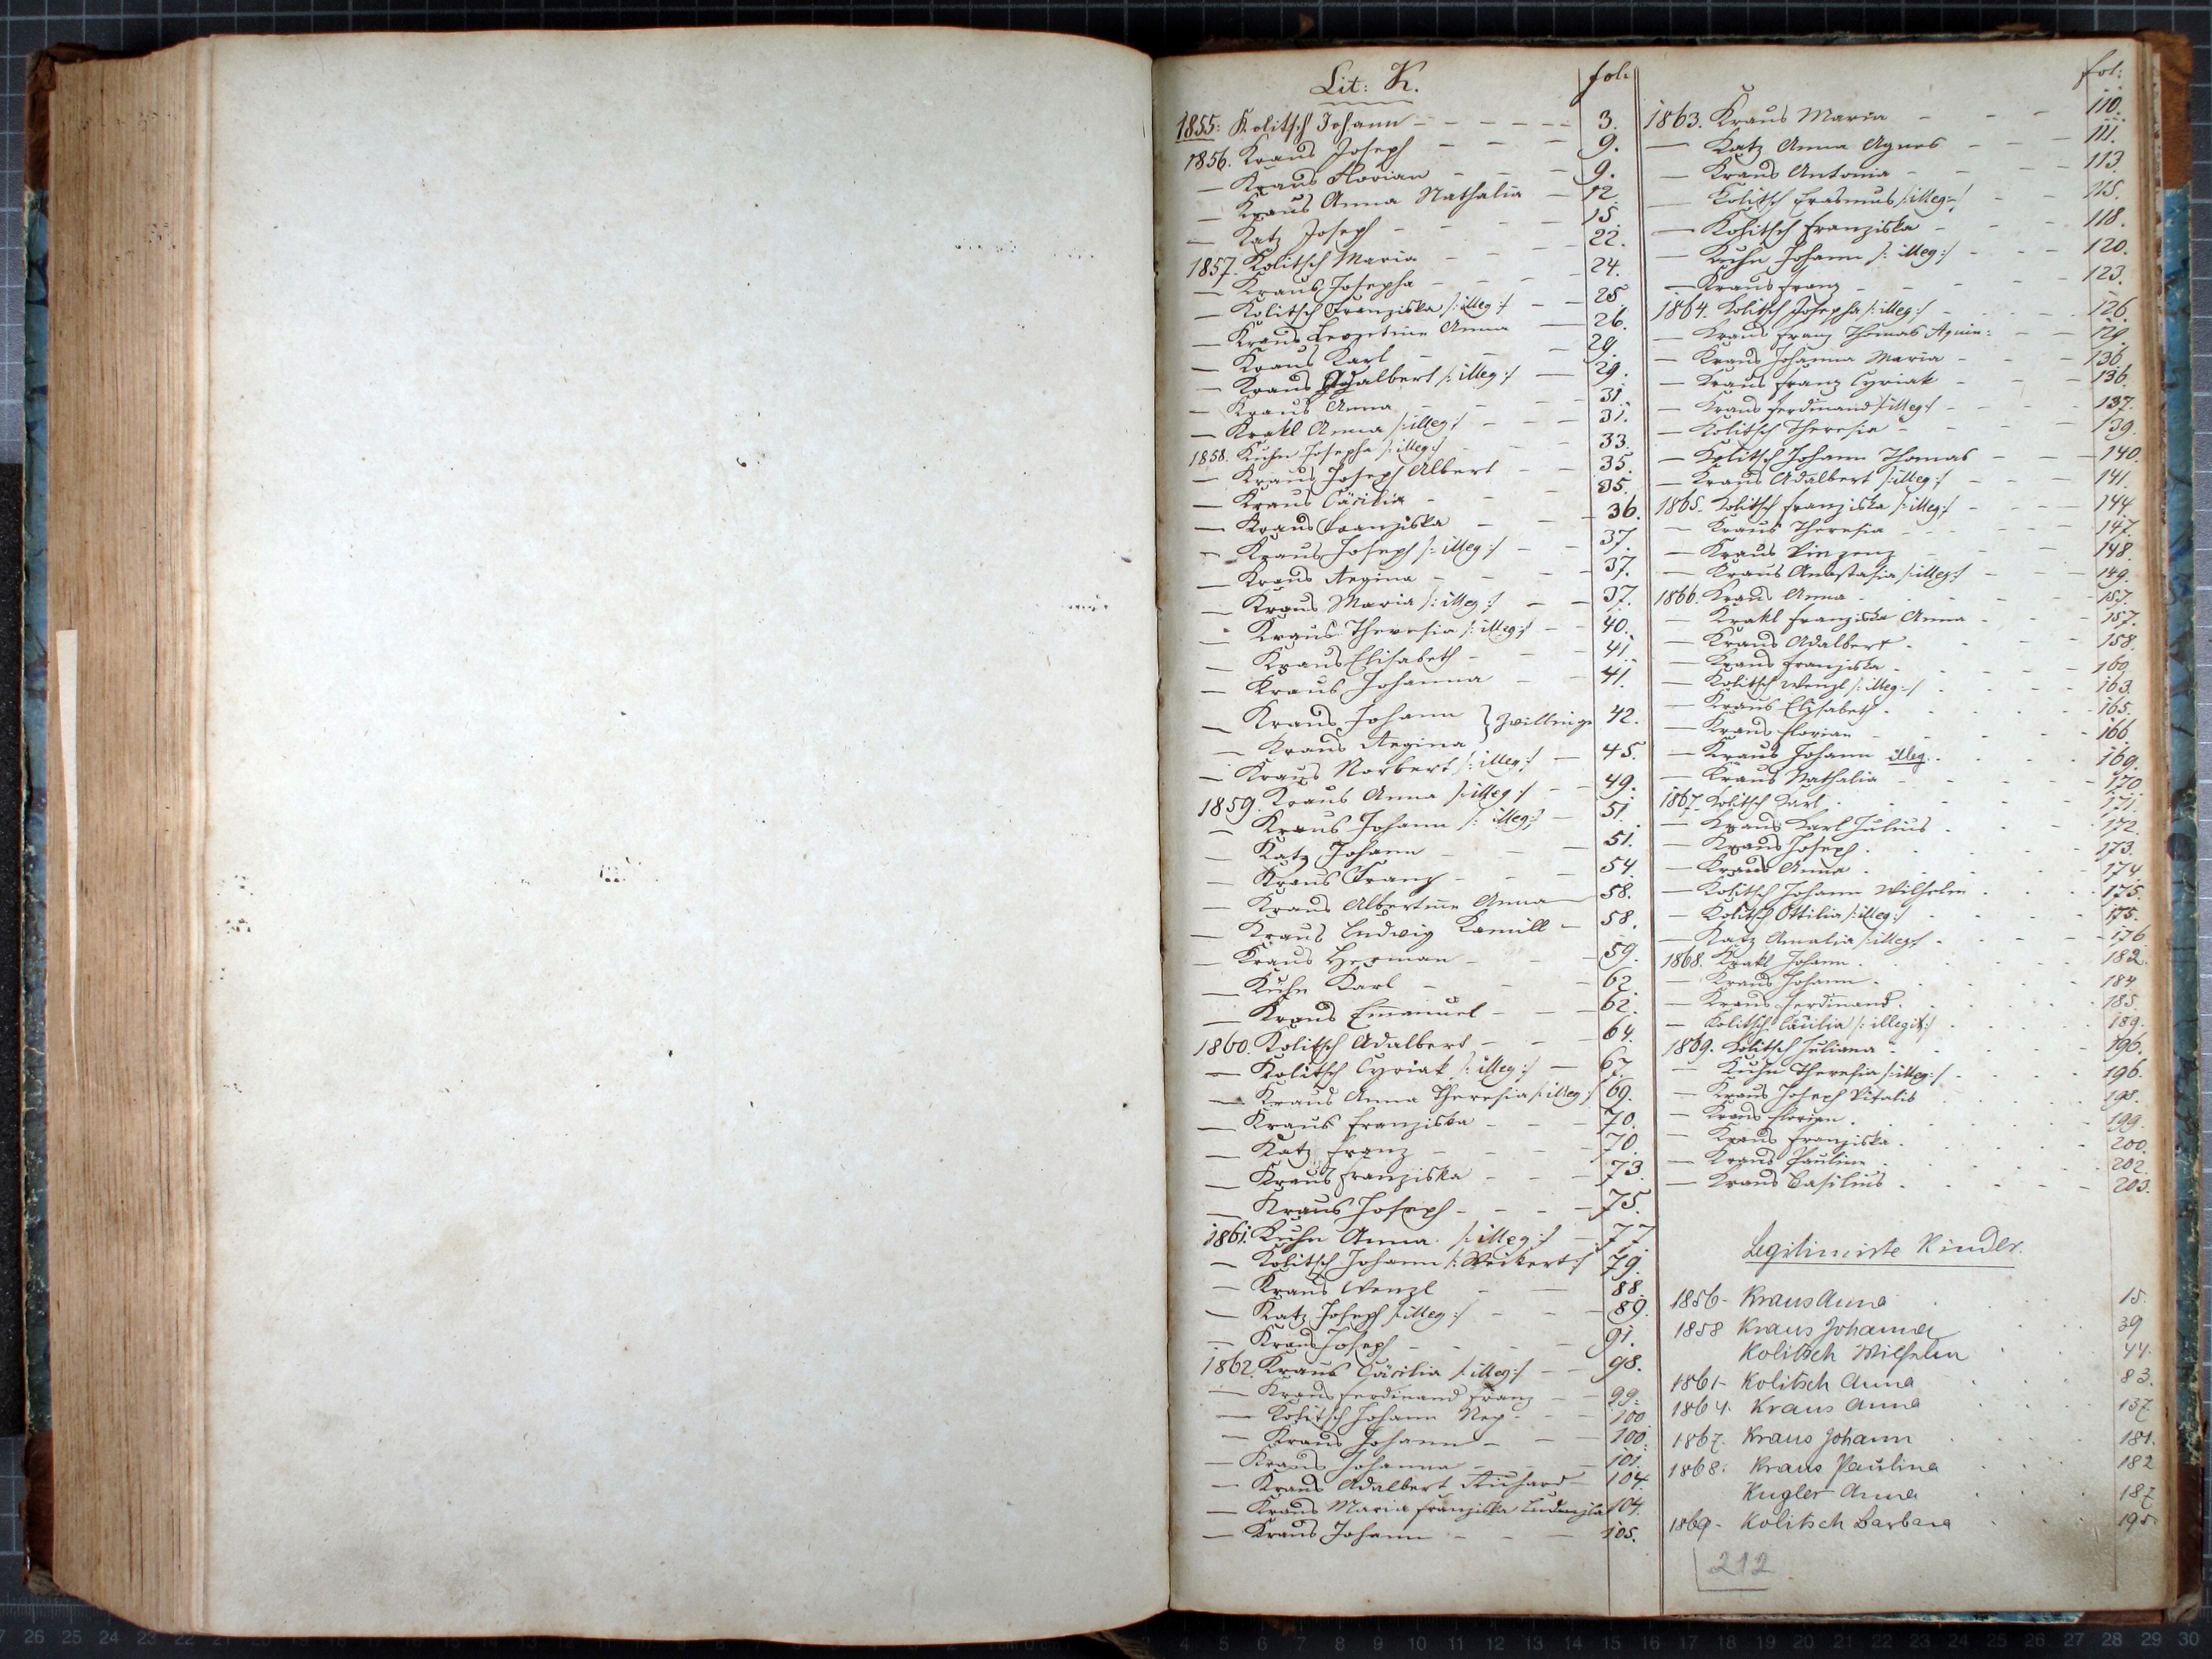 Lit: K. fol:
1855: Kolitsch Johann - - - - - - 3.
1856. Kraus Joseph - - - 9.
— Kraus Florian - - - 9.
— Kraus Anna Nathalia - 12
— Katz Joseph - - - - 15
1857. Kolitsch Maria - - - 22.
— Kraus Josepha - - - 24.
— Kolitsch Franziska /: illeg :/ - - 25
— Kraus Leopoldine Anna - 26.
— Kraus Karl - - - 29.
— Kraus Adalbert /: illeg :/ - 29.
— Kraus Anna - - - 31
— Krakl Anna /: illeg :/ - - - 31.
1858. Kuhn Josepha /: illeg :/ - - 33.
— Kraus Joseph Albert - - 35.
— Kraus Cäcilia - - - 35.
— Kraus Franziska - - - 36.
— Kraus Joseph /: illeg :/ - - 37
— Kraus Regina - - - - 37.
— Kraus Maria /: illeg :/ - - 37.
— Kraus Theresia /: illeg :/ - - 40.
— Kraus Elisabeth - - - 41
— Kraus Johanna - - 41.
— Kraus Johann } Zwillinge 42.
— Kraus Regina
— Kraus Norbert /: illeg :/ - 45.
1859. Kraus Anna /: illeg :/ - - 49.
— Kraus Johann /: illeg :/ - 51.
— Katz Johann - - - 51.
— Kraus Franz - - - 54.
— Kraus Albertine Anna - 58.
— Kraus Ludwig Kamill - 58.
— Kraus Herman - - - 59.
— Kuhn Karl - - - 62.
— Kraus Emanuel - - - 62.
1860. Kolitsch Adalbert - - - 64.
— Kolitsch Cyriak /: illeg :/ - 67.
— Kraus Anna Theresia /: illeg :/ 69.
— Kraus Franziska - - - 70.
— Katz Franz - - - - 70.
— Kraus Franziska - - - 73
— Kraus Joseph - - - - 75.
1861. Kuhn Anna /: illeg :/ - 77
— Kolitsch Johann /: :/ 79.
— Kraus Wenzl - - 88.
— Katz Joseph /: illeg :/ - - - 89.
— Kraus Joseph - - - - 91.
1862. Kraus Cäcilia /: illeg :/ - - 98.
— Kraus Ferdinand Franz - - 99.
— Kolitsch Johann Nep - - - 100
— Kraus Johann - - - 100.
— Kraus Johanna - - - 101.
— Kraus Adalbert Richard - 104.
— Kraus Maria Franziska 104.
— Kraus Johann - - - 105.
fol:
1863. Kraus Maria - - - 110.
— Katz Anna Agnes - - - 111.
— Kraus Antonia - - - - 113.
— Kolitsch Erasmus /: illeg :/ - - 115.
— Kolitsch Franziska - - - 118.
— Kuhn Johann /: illeg :/ - - - 120.
— Kraus Franz - - - - - 123.
1864. Kolitsch Josepha /: illeg :/ - - - 126.
— Kraus Franz Thomas Aquin: - - 129.
— Kraus Johanna Maria - - - 136.
— Kraus Franz Cyriak - - - 136.
— Kraus Ferdinand /: illeg :/ - - - 137.
— Kolitsch Theresia - - - - 139.
— Kolitsch Johann Thomas - - - 140.
— Kraus Adalbert /: illeg :/ - - - 141.
1865. Kolitsch Franziska /: illeg :/ - - - 144
— Kraus Theresia - - - - 147.
— Kraus Vinzenz - - - - 148.
— Kraus Anastasia /: illeg :/ - - - 149.
1866. Kraus Anna - - - - 157.
— Krakl Franziska Anna - - - 157.
— Kraus Adalbert - - - - 158.
— Kraus Franziska - - - - 160.
— Kolitsch Wenzl /: illeg :/ - - - 163.
— Kraus Elisabeth - - - - 165.
— Kraus Florian - - - - 166
— Kraus Johann illeg. - - - 169.
— Kraus Nathalia - - - - 170
1867. Kolitsch Karl - - - - 171.
— Kraus Karl Julius - - - 172.
— Kraus Joseph - - - - 173.
— Kraus Anna - - - - 174
— Kolitsch Johann Wilhelm - - - 175.
— Kolitsch Ottilia /: illeg :/ - - - 175.
— Katz Amalia /: illeg :/ - - - 176
1868. Krakl Johann - - - - 182.
— Kraus Johann - - - - 184
— Kraus Ferdinand - - - - 185.
— Kolitsch Cäcilia /: illegit :/ - - - 189.
1869. Kolitsch Juliana - - - - 196.
— Kuhn Theresia /: illeg :/ - - - 196.
— Kraus Joseph Vitalis - - - 198.
— Kraus Florian - - - - 199.
— Kraus Franziska - - - - 200.
— Kraus Pauline - - - - 202.
— Kraus Basilius - - - - 203.
Legitimirte Kinder.
1856 - Kraus Anna 15.
1858 Kraus Johanna 39
Kolitsch Wilhelm 44.
1861 - Kolitsch Anna 83.
1864. Kraus Anna 137
1867. Kraus Johann 181.
1868. Kraus Paulina 182
Kugler Anna 187
1869 - Kolitsch Barbara 195
212